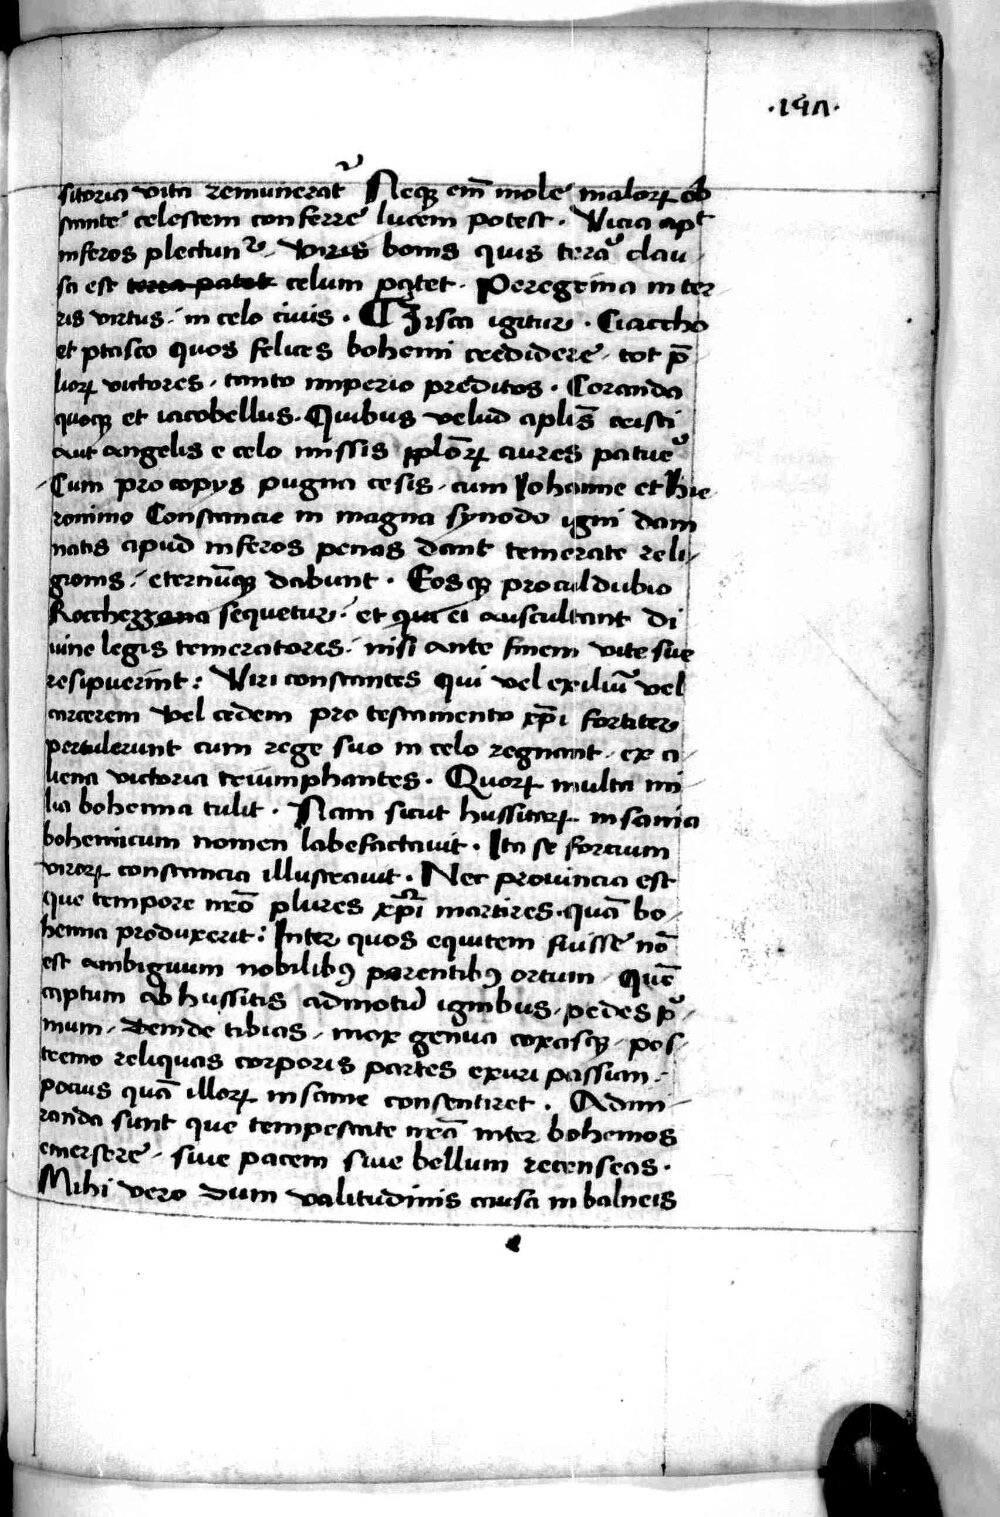 ·197·
sitoria vita remunerat᷑ Neqꝫ em̄ mole malorꝝ ob
stante celestem conferre lucem potest · Vicia apt
inferos plectunt᷑ · viris bonis quis terra clau
sa est terra patet celum patet · Peregrina in ter
ris virtus · in celo civis · ¶ Zisca igitur · Ciaccho
et ptasco quos felices bohemi credidere · tot p̄
liorꝝ victores · tanto imperio preditos · Coranda
quoqꝫ et iacobellus · Quibus velud aplīs cristi
aut angelis e celo missis pplōrꝝ aures patue᷑
Cum procopys pugna cesis · cum Iohanne et hie
ronimo Constancie in magna synodo igni dam
natis apud inferos penas dant temerate reli
gionis · eternūqꝫ dabunt · Eosqꝫ proculdubio
Rocchezzana sequetur · et qui ei auscultant di
vine legis temeratores · nisi ante finem vite sue
resipuerint : Viri constantes qui vel exiliū vel
carcerem vel cedem pro testamento xp̄i fortiter
pertulerunt cum rege suo in celo regnant · ex a
liena victoria triumphantes · Quorꝝ multa mi
lia bohemia tulit · Nam sicut hussitarꝝ insania
bohemicum nomen labefactavit · Ita se fortium
virorꝝ constancia illustravit · Nec provincia est
que tempore nr̄o plures xp̄i martires · quā bo
hemia produxerit : Inter quos equitem fuisse nō
est ambiguum nobilibꝫ parentibꝫ ortum · Quē
captum ab hussitis admotis ignibus · pedes p᷑
mum · deinde tibias · mox genua coxasqꝫ · pos
tremo reliquas corporis partes exuri passum ·
pocius quā illorꝝ insanie consentiret · Admi
randa sunt que tempestate nr̄a inter bohemos
emersere · sive pacem sive bellum recenseas ·
Mihi vero dum valitudinis causa in balneis